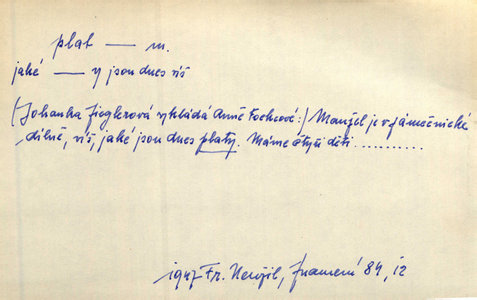 plat — m.
jaké — y jsou dnes víš
(Johanka Zieglerová vykládá Anně Fochcové:) Manžel je v zámečnické
dílně, víš, jaké jsou dnes platy. Máme čtyři děti...........
1947 Fr. Neužil, Znamení 84, 12